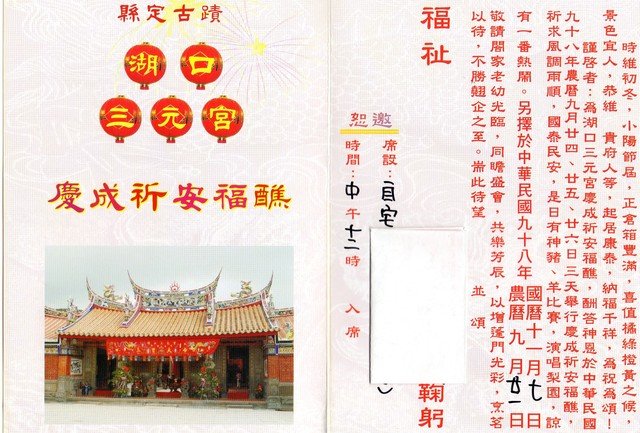 縣定古蹟
湖口
三元宮
慶成祈安福醮
時維初冬，小陽節屆，正倉箱豐滿，喜值橘綠橙黃之候，
景色宜人，恭維 貴府人等，起居康泰，納福千祥，為祝為頌！
謹啓者：為湖口三元宮慶成祈安福醮，酬答神恩於中華民國
九十八年農曆九月廿四、廿五、廿六日三天舉行慶成祈安福醮，
祈求風調雨順，國泰民安，是日有神豬、羊比賽，演唱梨園，諒
有一番熱鬧。另擇於中華民國九十八年
國曆十一月七日
農曆九月廿一日
敬請閤家老幼光臨，同瞻盛會，共樂芳辰，以增蓬門光彩，烹茗
以待，不勝翹企之至。耑此待望 並頌
福祉
鞠躬
恕邀
席設：自宅
時間：中午十二時 入席